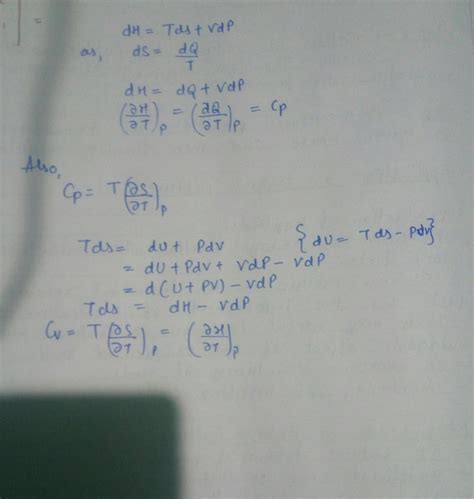 ] =
dH = Tds + VdP
as, dS = dQ/T
dH = dQ + VdP
(∂H/∂T)p = (∂Q/∂T)p = Cp
Also,
Cp = T(∂S/∂T)p
Tds = dU + Pdv {dU = Tds - Pdv}
= dU + Pdv + VdP - VdP
= d(U + PV) - VdP
Tds = dH - VdP
Cv = T(∂S/∂T)p = (∂H/∂T)p